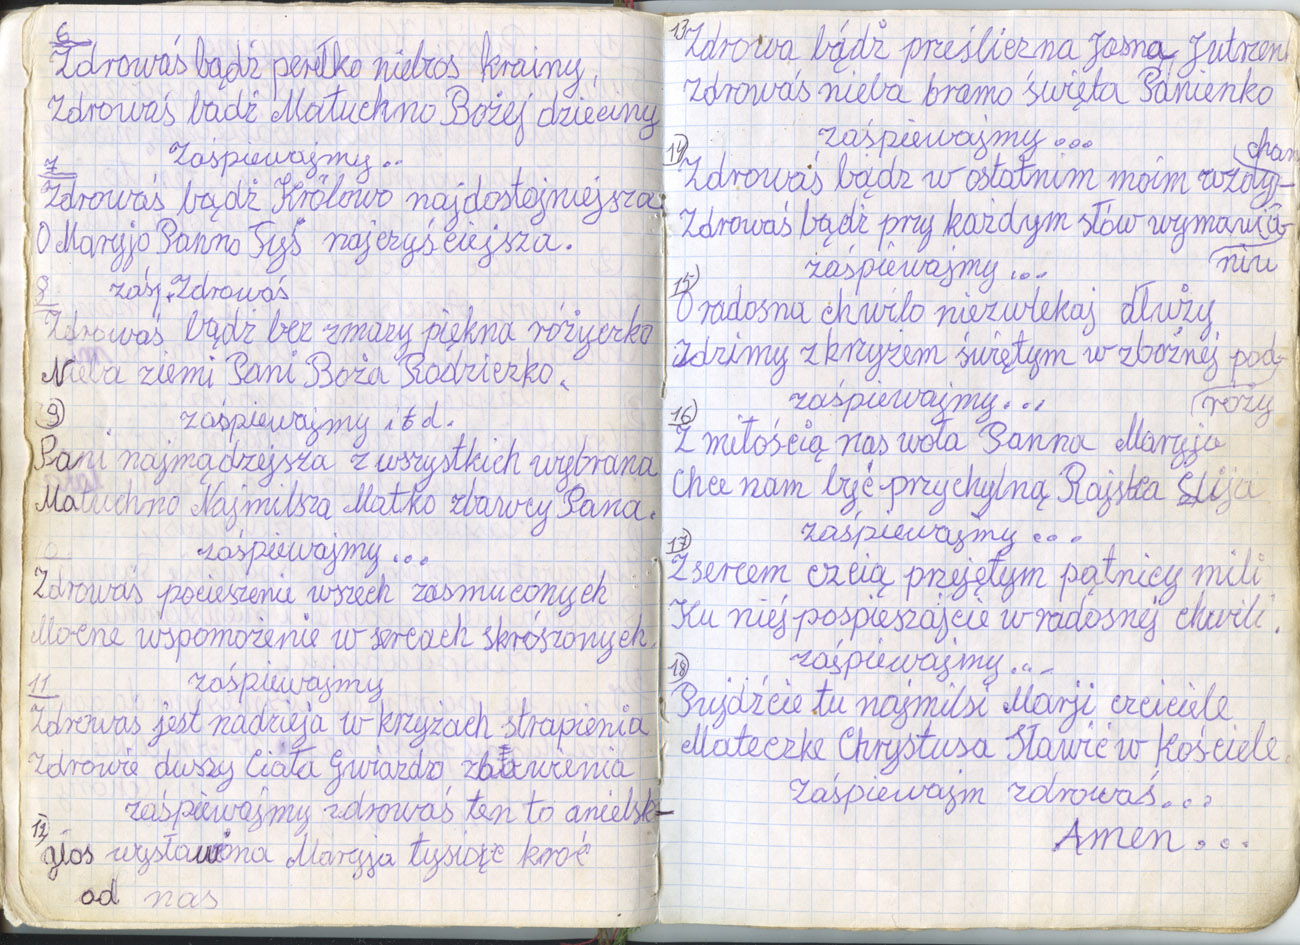 6
Zdrowaś bądź perełko niebios krainy,
Zdrowaś badź Matuchno Bożej dzieciny
Zaśpiewajmy..
7
Zdrowaś bądź Królowo najdostojniejsza
O Maryjo Panno Tyś najczyściejsza.
8 zaśp. Zdrowaś
Zdrowaś bądź bez zmazy piękna różyczko
Nieba ziemi Pani Boża Rodziczko.
9 zaśpiewajmy itd.
Pani najmądzejsza z wszystkich wybrana
Matuchno Najmilsza Matko zbawcy Pana.
10 zaśpiewajmy...
Zdrowaś pocieszenie wszech zasmuconych
Mocne wspomożenie w sercach skrószonych.
11 zaśpiewajmy
Zdrowaś jest nadzieja w krzyżach strapienia
Zdrowie duszy Ciała Gwiazdo zbawienia
zaśpiewajmy zdrowaś ten to anielsk-
12
głos wysławiona Maryja tysiąc kroć
od nas
13 Zdrowa bądź prześliczna Jasna Jutrzen
Zdrowaś nieba bramo święta Panienko
zaśpiewajmy...
14 cham
Zdrowaś bądz w ostatnim moim wzdy-
Zdrowaś bądź przy każdym słów wymawia-
zaśpiewajmy... niu
15
O radosna chwilo niezwlekaj dłuży
Zdzimy z krzyżem świętym w zbożnej pod-
zaśpiewajmy... roży
16
Z miłością nas woła Panna Maryja
Chce nam być przychylną Rajska Lilja
zaśpiewajmy...
17
Z sercem czcią przejętym pątnicy mili
Ku niéj pospieszajcie w radosnéj chwili.
18 zaśpiewajmy...
Pujdźcie tu najmilsi Marji czciciele
Mateczke Chrystusa Sławić w Kościele.
Zaśpiewajm zdrowaś...
Amen...